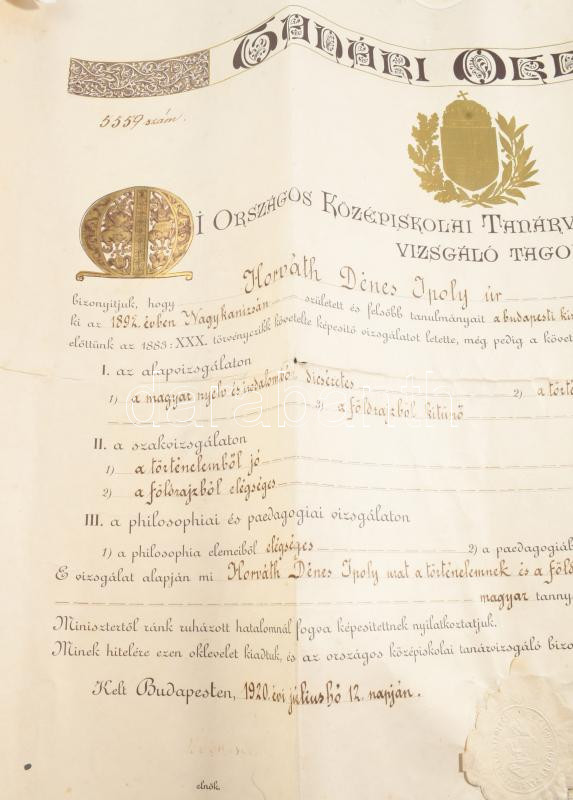 TANÁRI OKL
5559 szám.
MI ORSZÁGOS KÖZÉPISKOLAI TANÁRV
VIZSGÁLÓ TAGO
bizonyítjuk, hogy Horváth Dénes Ipoly úr
ki az 1892. évben Nagykanizsán született és felsőbb tanulmányait a budapesti kir
előttünk az 1883: XXX. törvényczikk követelte képesítő vizsgálatot letette, még pedig a követ
I. az alapvizsgálaton
1) a magyar nyelv és irodalomból dicséretes 2) a törté
3) a földrajzból kitünő
II. a szakvizsgálaton
1) a történelemből jó
2) a földrajzból elégséges
III. a philosophiai és paedagogiai vizsgálaton
1) a philosophia elemeiből elégséges 2) a paedagogiáb
E vizsgálat alapján mi Horváth Dénes Ipoly urat a történelemnek és a föld
magyar tanny
Minisztertől ránk ruházott hatalomnál fogva képesítettnek nyilatkoztatjuk.
Minek hitelére ezen oklevelet kiadtuk, és az országos középiskolai tanárvizsgáló bizo
Kelt Budapesten, 1920. évi júliushó 12. napján.
elnök.
darabanth